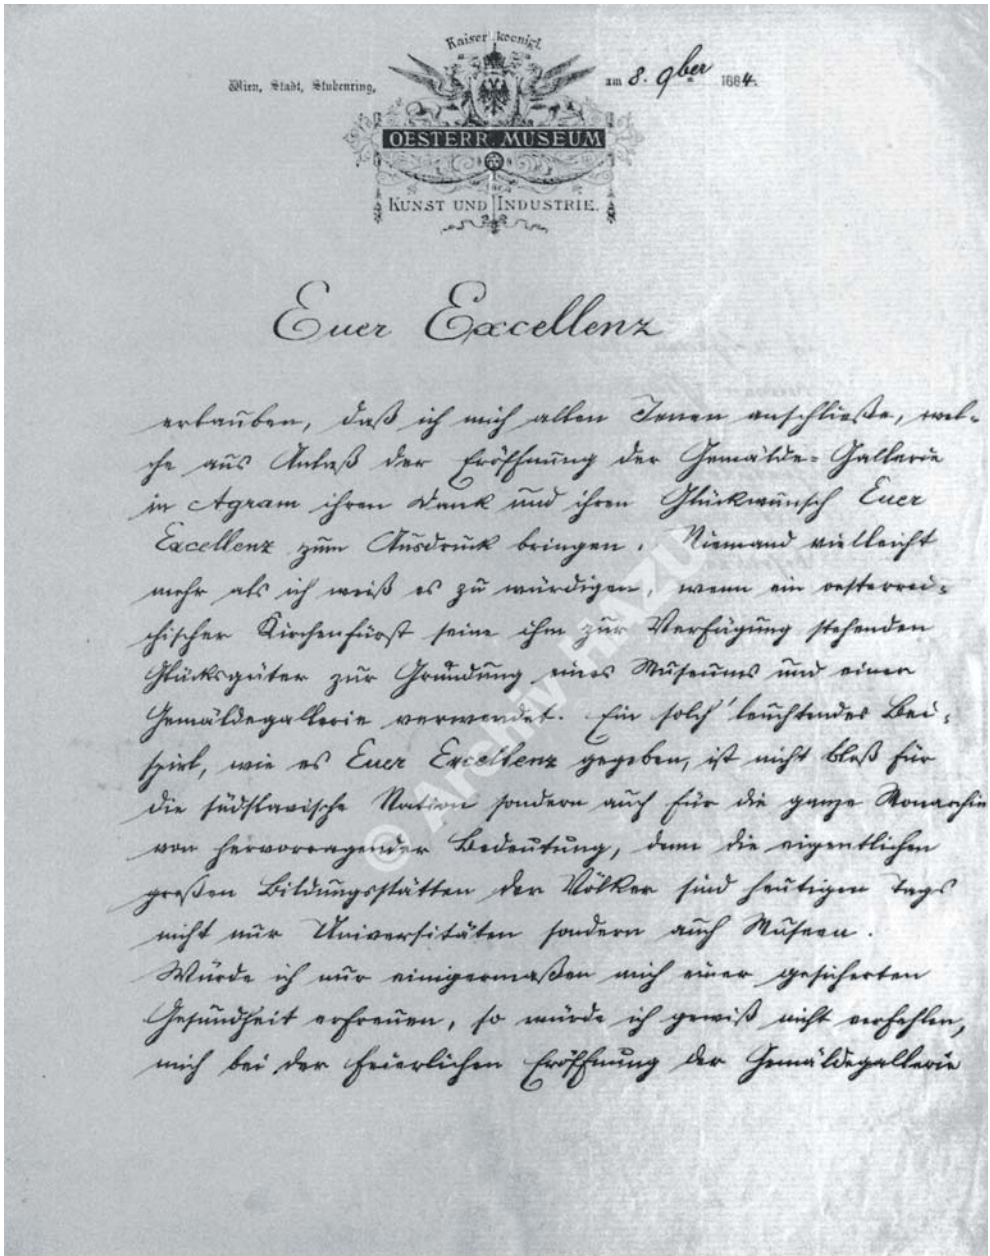 Kaiser koenigl.
Wien, Stadt, Stubenring,
am 8. 9ber 1884.
OESTERR. MUSEUM
KUNST UND INDUSTRIE.
Euer Excellenz
erlauben, daß ich mich allen Jenen anschließe, wel-
che aus Anlaß der Eröffnung der Gemälde-Gallerie
in Agram ihren Dank und ihren Glückwunsch Euer
Excellenz zum Ausdruck bringen. Niemand vielleicht
mehr als ich weiß es zu würdigen, wenn ein oesterrei-
chischer Kirchenfürst seine ihm zur Verfügung stehenden
Glücksgüter zur Gründung eines Museums und einer
Gemäldegallerie verwendet. Ein solch' leuchtendes Bei-
spiel, wie es Euer Excellenz gegeben, ist nicht bloß für
die südslavische Nation sondern auch für die ganze Monarchie
von hervorragender Bedeutung, denn die eigentlichen
großen Bildungsstätten der Völker sind heutigen Tags
nicht nur Universitäten sondern auch Museen.
Würde ich nur einigermaßen mich einer gesicherten
Gesundheit erfreuen, so würde ich gewiß nicht verfehlen,
mich bei der feierlichen Eröffnung der Gemäldegallerie
© Archiv HAZU